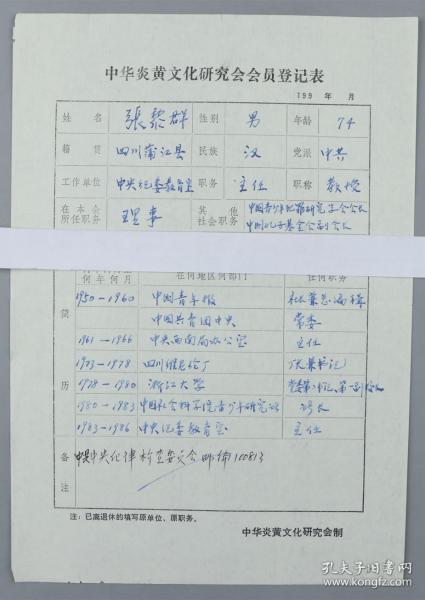 中华炎黄文化研究会会员登记表
199 年 月
姓名 張黎群 性别 男 年龄 74
籍贯 四川蒲江县 民族 汉 党派 中共
工作单位 中央纪委教育室 职务 主任 职称 教授
在本会所任职务 理事 其他社会职务 中国青少年犯罪研究学会会长
中国孔子基金会副会长
何年何月 在何地区何部门 任何职务
简历
1950—1960 中国青年报 社长兼总编辑
中国共青团中央 常委
1961—1966 中央西南局办公室 主任
1973—1978 四川维尼纶厂 厂长兼书记
1978—1980 浙江大学 党委第二书记、第一副校长
1980—1983 中国社会科学院青少年研究所 所长
1983—1986 中央纪委教育室 主任
备注 中共中央纪律检查委员会 邮编100813
注：已离退休的填写原单位、原职务。
中华炎黄文化研究会制
孔夫子旧书网
www.kongfz.com